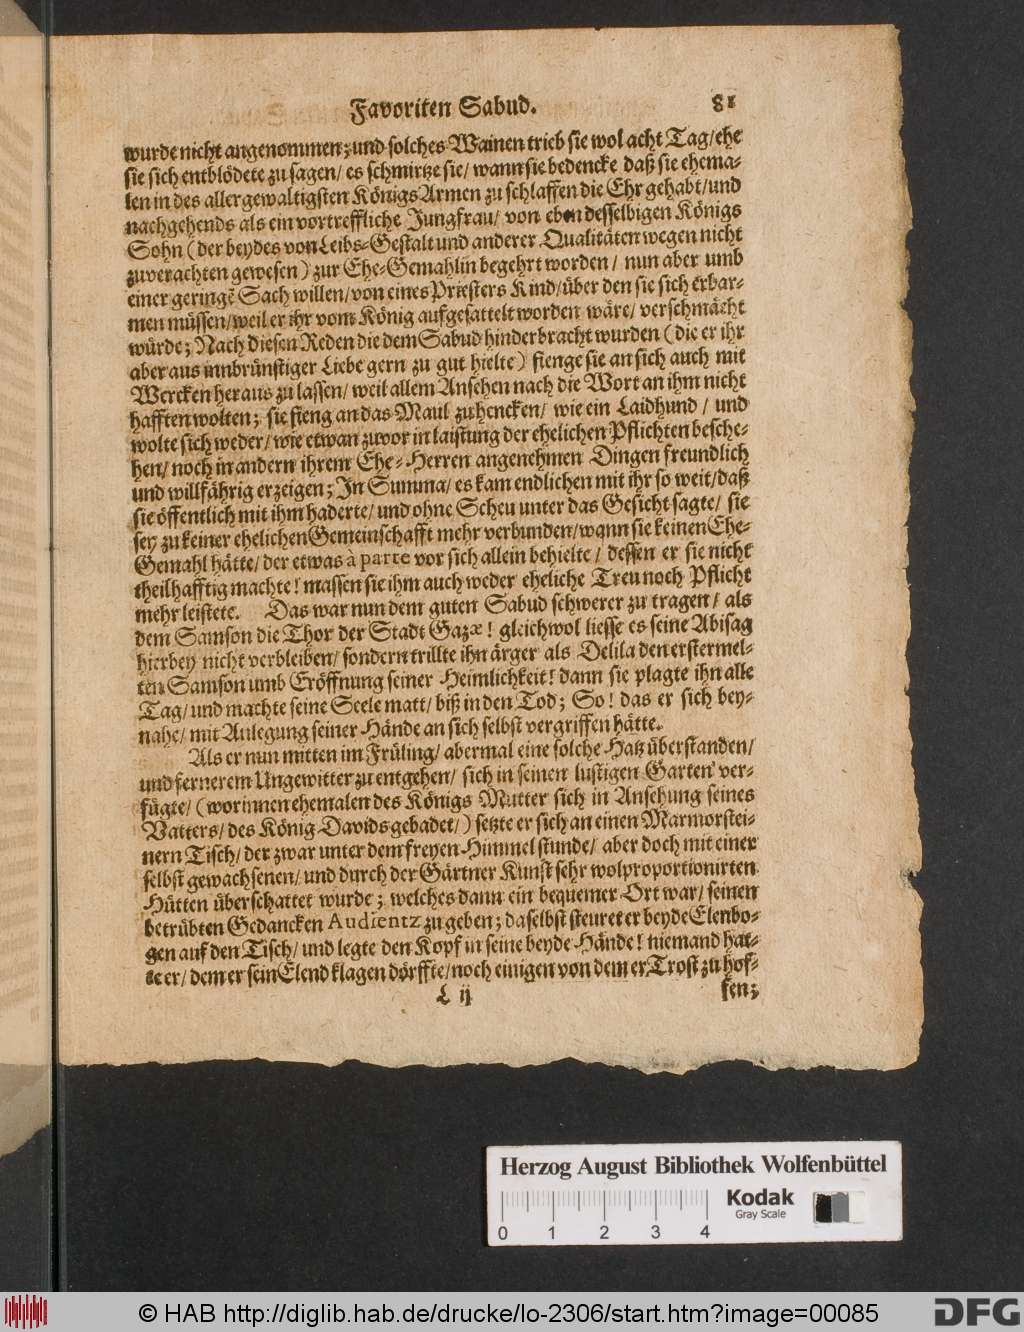 Favoriten Sabud. 81
wurde nicht angenommen; und solches Wainen trieb sie wol acht Tag/ ehe
sie sich entblödete zu sagen/ es schmirtze sie/ wann sie bedencke daß sie ehema-
len in des allergewaltigsten Königs Armen zu schlaffen die Ehr gehabt/ und
nachgehends als ein vortreffliche Jungfrau/ von eben desselbigen Königs
Sohn (der beydes von Leibs-Gestalt und anderer Qualitäten wegen nicht
zuverachten gewesen) zur Ehe-Gemahlin begehrt worden/ nun aber umb
einer geringē Sach willen/ von eines Priesters Kind/ über den sie sich erbar-
men müssen/ weil er ihr vom König aufgesattelt worden wäre/ verschmächt
würde; Nach diesen Reden die dem Sabud hinderbracht wurden (die er ihr
aber aus innbrünstiger Liebe gern zu gut hielte) fienge sie an sich auch mit
Wercken heraus zu lassen/ weil allem Ansehen nach die Wort an ihm nicht
hafften wolten; sie fieng an das Maul zu hencken/ wie ein Laidhund/ und
wolte sich weder/ wie etwan zuvor in laistung der ehelichen Pflichten besche-
hen/ noch in andern ihrem Ehe-Herren angenehmen Dingen freundlich
und willfährig erzeigen; In Summa/ es kam endlichen mit ihr so weit/ daß
sie öffentlich mit ihm haderte/ und ohne Scheu unter das Gesicht sagte/ sie
sey zu keiner ehelichen Gemeinschafft mehr verbunden/ wann sie keinen Ehe-
Gemahl hätte/ der etwas à parte vor sich allein behielte/ dessen er sie nicht
theilhafftig machte! massen sie ihm auch weder eheliche Treu noch Pflicht
mehr leistete. Das war nun dem guten Sabud schwerer zu tragen/ als
dem Samson die Thor der Stadt Gazæ! gleichwol liesse es seine Abisag
hierbey nicht verbleiben/ sondern trillte ihn ärger als Delila den erstermel-
ten Samson umb Eröffnung seiner Heimlichkeit! dann sie plagte ihn alle
Tag/ und machte seine Seele matt/ biß in den Tod; So! das er sich bey-
nahe/ mit Anlegung seiner Hände an sich selbst vergriffen hätte.
Als er nun mitten im Früling/ abermal eine solche Hatz überstanden/
und fernerem Ungewitter zu entgehen/ sich in seinen lustigen Garten ver-
fügte/ (worinnen ehemalen des Königs Mutter sich in Ansehung seines
Vatters/ des König Davids gebadet/) setzte er sich an einen Marmorstei-
nern Tisch/ der zwar unter dem freyen Himmel stunde/ aber doch mit einer
selbst gewachsenen/ und durch der Gärtner Kunst sehr wolproportionirten
Hütten überschattet wurde; welches dann ein bequemer Ort war/ seinen
betrübten Gedancken Audientz zu geben; daselbst steuret er beyde Elenbo-
gen auf den Tisch/ und legte den Kopf in seine beyde Hände! niemand hat-
te er/ dem er sein Elend klagen dörffte/ noch einigen von dem er Trost zu hof-
L ij fen;
Herzog August Bibliothek Wolfenbüttel
Kodak
Gray Scale
0 1 2 3 4
© HAB http://diglib.hab.de/drucke/lo-2306/start.htm?image=00085
DFG